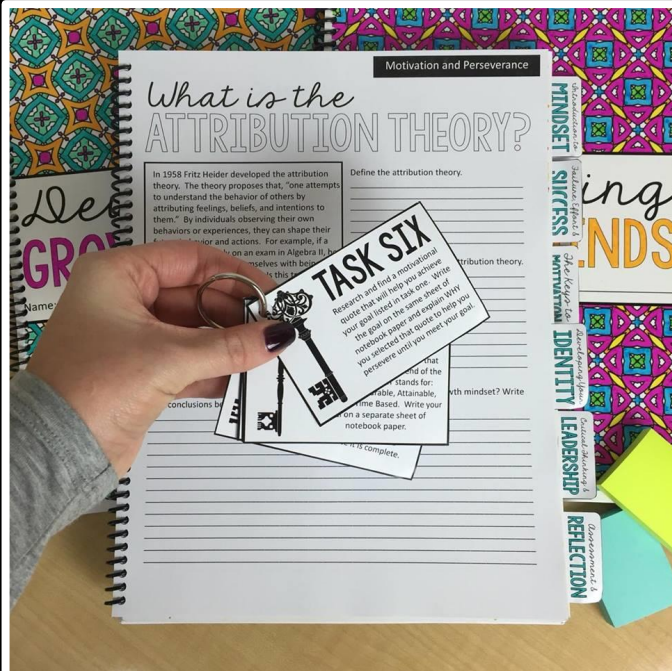 Motivation and Perseverance
What is the
ATTRIBUTION THEORY?
In 1958 Fritz Heider developed the attribution
theory. The theory proposes that, "one attempts
to understand the behavior of others by
attributing feelings, beliefs, and intentions to
them." By individuals observing their own
behaviors or experiences, they can shape their
and actions. For example, if a
on an exam in Algebra II,
Define the attribution theory.
theory.
mindset? Write
conclusions
TASK SIX
Research and find a motivational
quote that will help you achieve
your goal listed in task one. Write
the goal on the same sheet of
notebook paper and explain WHY
you selected that quote to help you
persevere until you meet your goal.
that
of the
stands for:
Attainable,
Time Based. Write your
on a separate sheet of
notebook paper.
is complete.
Introduction to
MINDSET
Failure, Effort &
SUCCESS
The Keys to
MOTIVATION
Developing Your
IDENTITY
Critical Thinking &
LEADERSHIP
Assessment &
REFLECTION
Name: